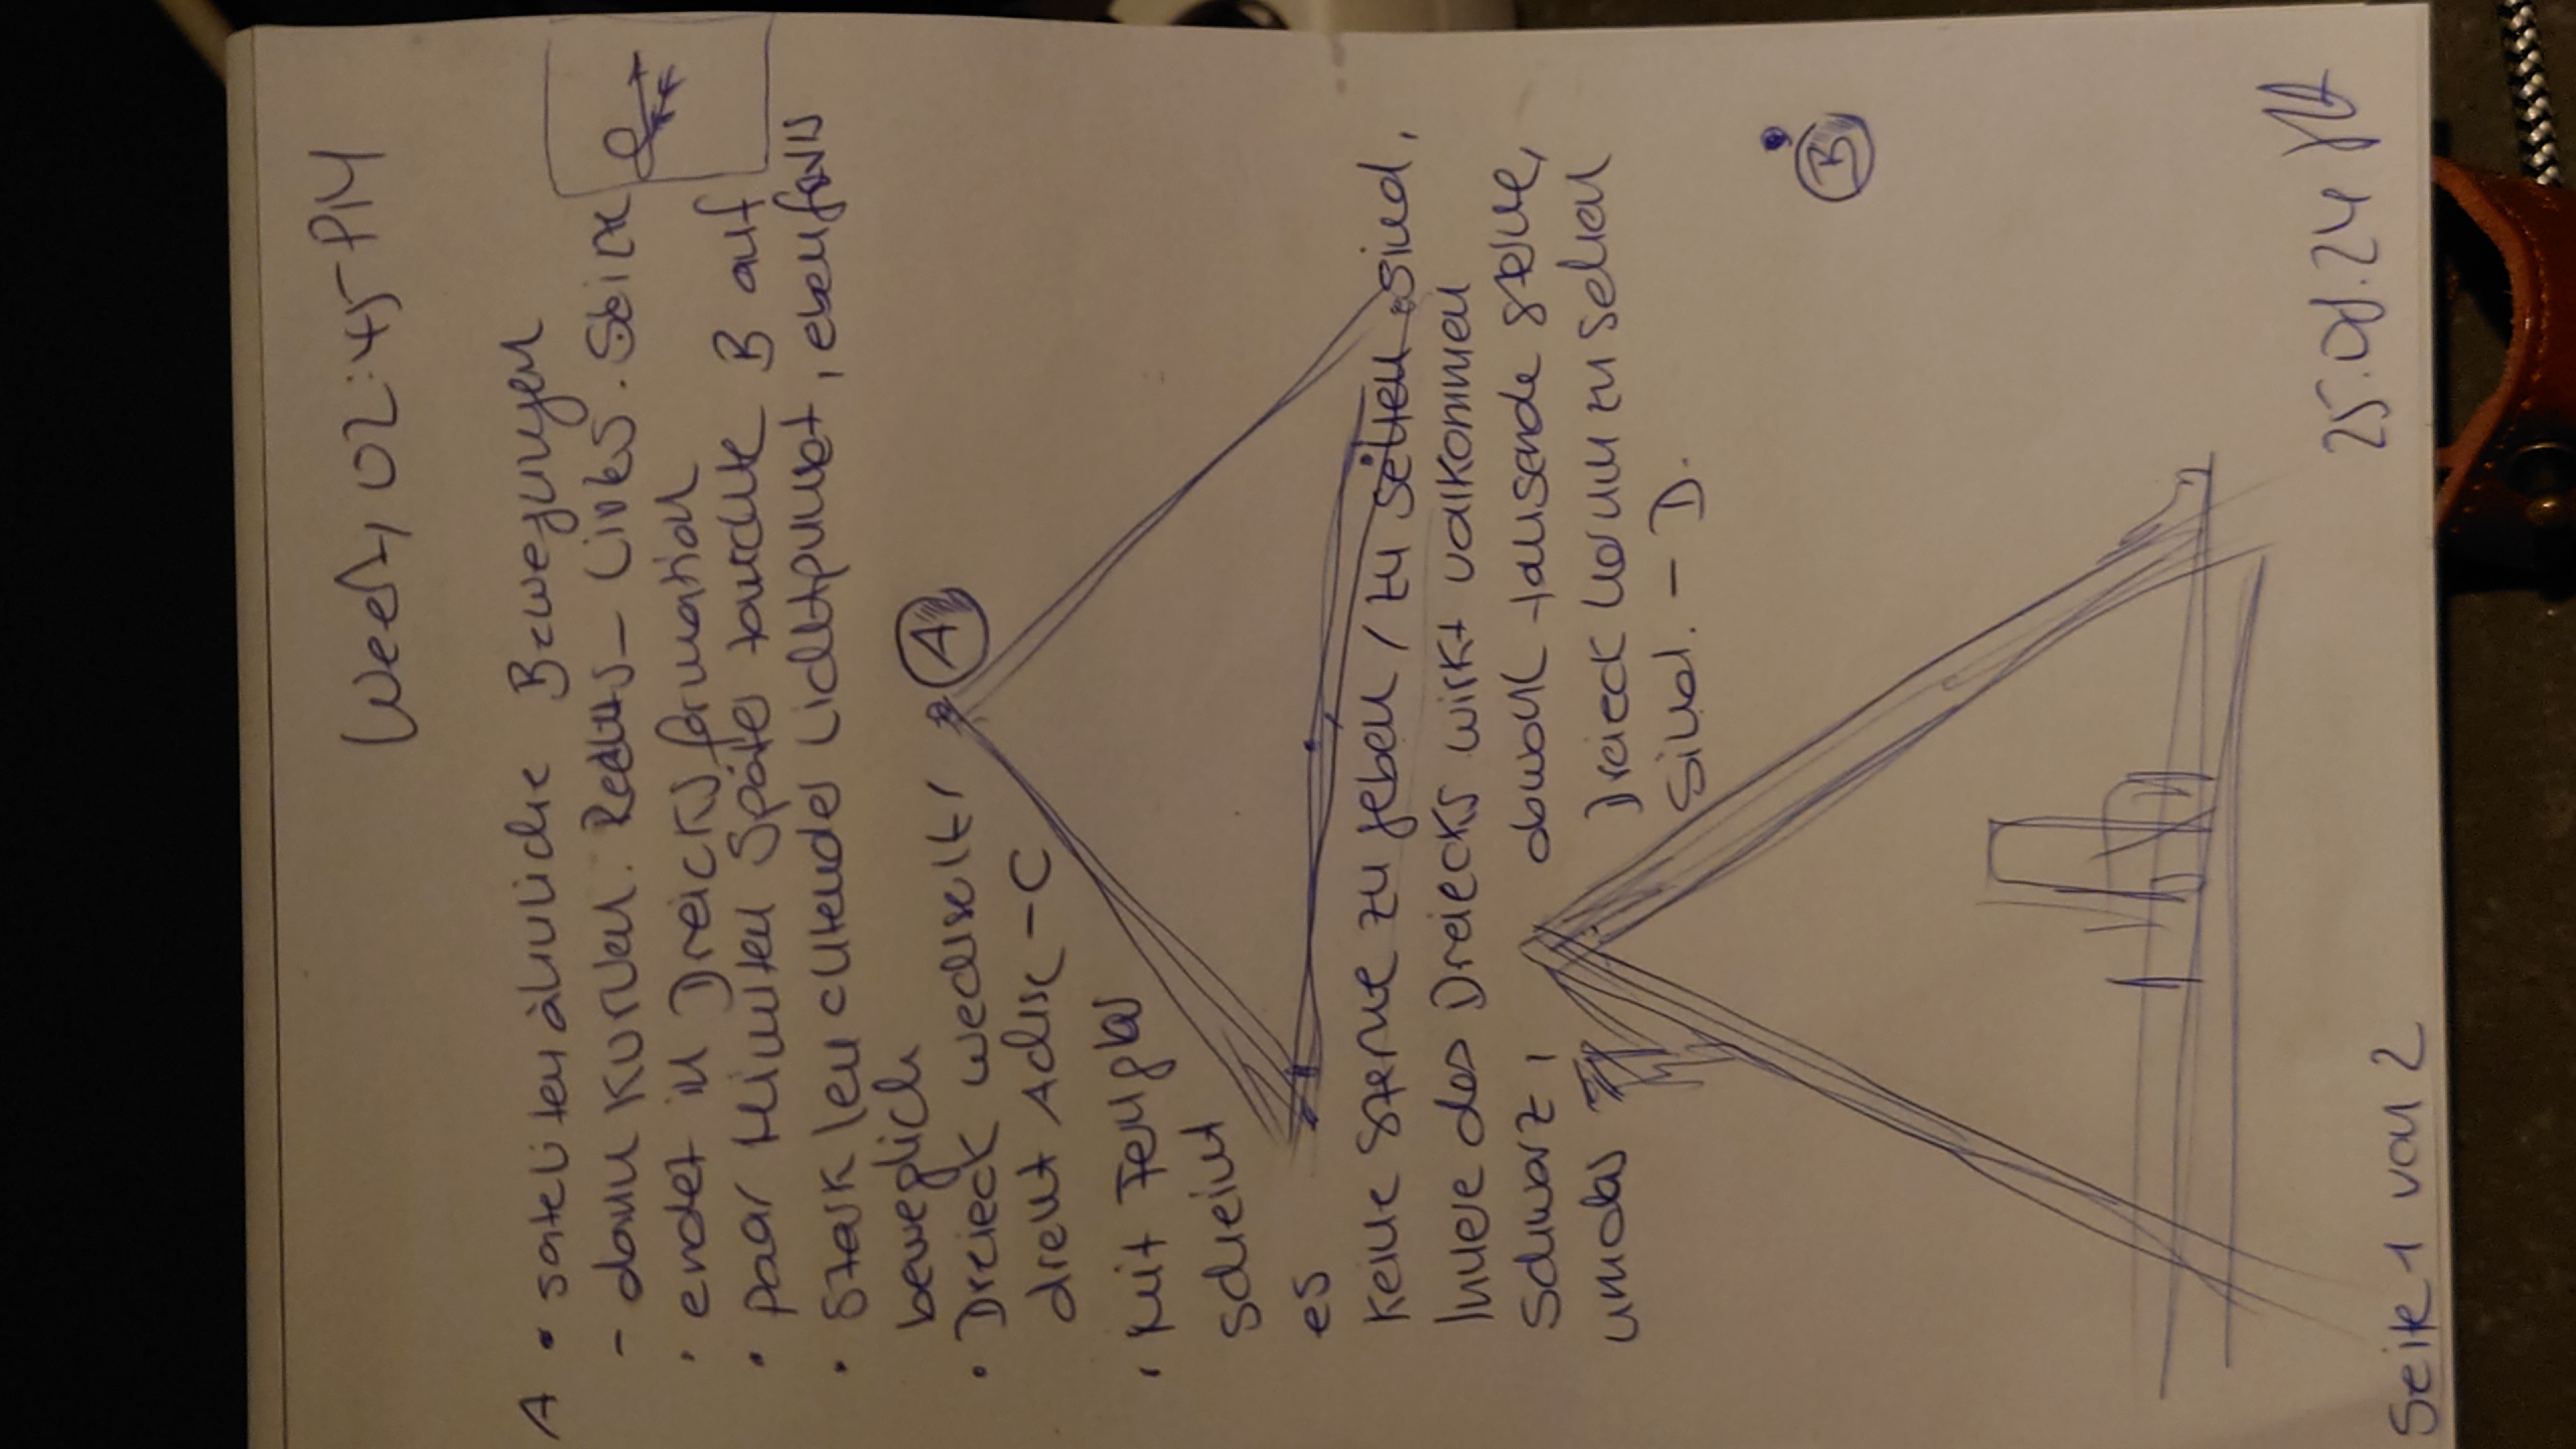 02:45 PM
A • satelitenähnliche Bewegungen
- dann Kurven. Rechts - Links.
• endet in Dreiecksformation
• paar Minuten Später tauchte B auf
• Stark leuchtender Lichtpunkt, ebenfalls
beweglich
• Dreieck wechselt,
dreht Achse - C
A
• Mit Fernglas
scheint
es
keine Sterne zu geben / zu sehen sind,
Innere des Dreiecks wirkt vollkommen
Schwarz, obwohl tausende Sterne,
um das Dreieck herum zu sehen
Sind. - D.
B
Seite 1 von 2
24